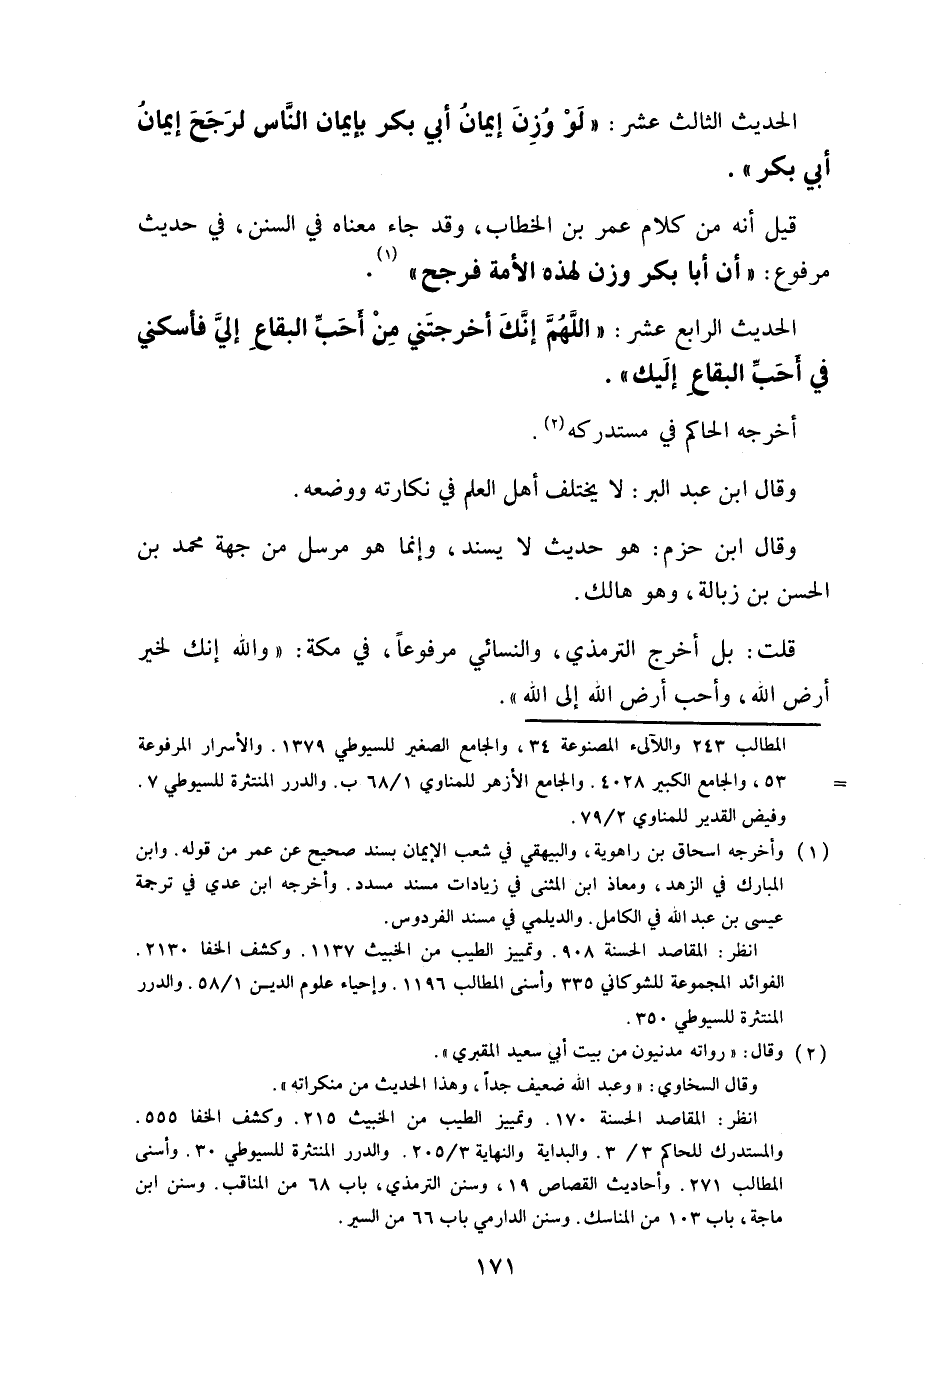 الحديث الثالث عشر : « لَوْ وُزِنَ إيمانُ أبي بكر بإيمان النَّاس لرَجَحَ إيمانُ
أبي بكر » .
قيل أنه من كلام عمر بن الخطاب ، وقد جاء معناه في السنن ، في حديث
مرفوع : « أن أبا بكر وزن لهذه الأمة فرجح » (١) .
الحديث الرابع عشر : « اللَّهُمَّ إنَّكَ أخرجتَني مِنْ أَحَبِّ البقاعِ إليَّ فأسكني
في أَحَبِّ البقاعِ إلَيك » .
أخرجه الحاكم في مستدركه (٢) .
وقال ابن عبد البر : لا يختلف أهل العلم في نكارته ووضعه .
وقال ابن حزم : هو حديث لا يسند ، وإنما هو مرسل من جهة محمد بن
الحسن بن زبالة ، وهو هالك .
قلت : بل أخرج الترمذي ، والنسائي مرفوعاً ، في مكة : « والله إنك لخير
أرض الله ، وأحب أرض الله إلى الله » .
المطالب ٢٤٣ واللآلىء المصنوعة ٣٤ ، والجامع الصغير للسيوطي ١٣٧٩ . والأسرار المرفوعة
= ٥٣ ، والجامع الكبير ٤٠٢٨ . والجامع الأزهر للمناوي ٦٨/١ ب . والدرر المنتثرة للسيوطي ٧ .
وفيض القدير للمناوي ٧٩/٢ .
(١) وأخرجه اسحاق بن راهوية ، والبيهقي في شعب الإيمان بسند صحيح عن عمر من قوله . وابن
المبارك في الزهد ، ومعاذ ابن المثنى في زيادات مسند مسدد . وأخرجه ابن عدي في ترجمة
عيسى بن عبد الله في الكامل . والديلمي في مسند الفردوس .
انظر : المقاصد الحسنة ٩٠٨ . وتمييز الطيب من الخبيث ١١٣٧ . وكشف الخفا ٢١٣٠ .
الفوائد المجموعة للشوكاني ٣٣٥ وأسنى المطالب ١١٩٦ . وإحياء علوم الدين ٥٨/١ . والدرر
المنتثرة للسيوطي ٣٥٠ .
(٢) وقال : « رواته مدنيون من بيت أبي سعيد المقبري » .
وقال السخاوي : « وعبد الله ضعيف جداً ، وهذا الحديث من منكراته » .
انظر : المقاصد الحسنة ١٧٠ . وتمييز الطيب من الخبيث ٢١٥ . وكشف الخفا ٥٥٥ .
والمستدرك للحاكم ٣/ ٣ . والبداية والنهاية ٢٠٥/٣ . والدرر المنتثرة للسيوطي ٣٠ . وأسنى
المطالب ٢٧١ . وأحاديث القصاص ١٩ ، وسنن الترمذي ، باب ٦٨ من المناقب . وسنن ابن
ماجة ، باب ١٠٣ من المناسك . وسنن الدارمي باب ٦٦ من السير .
١٧١